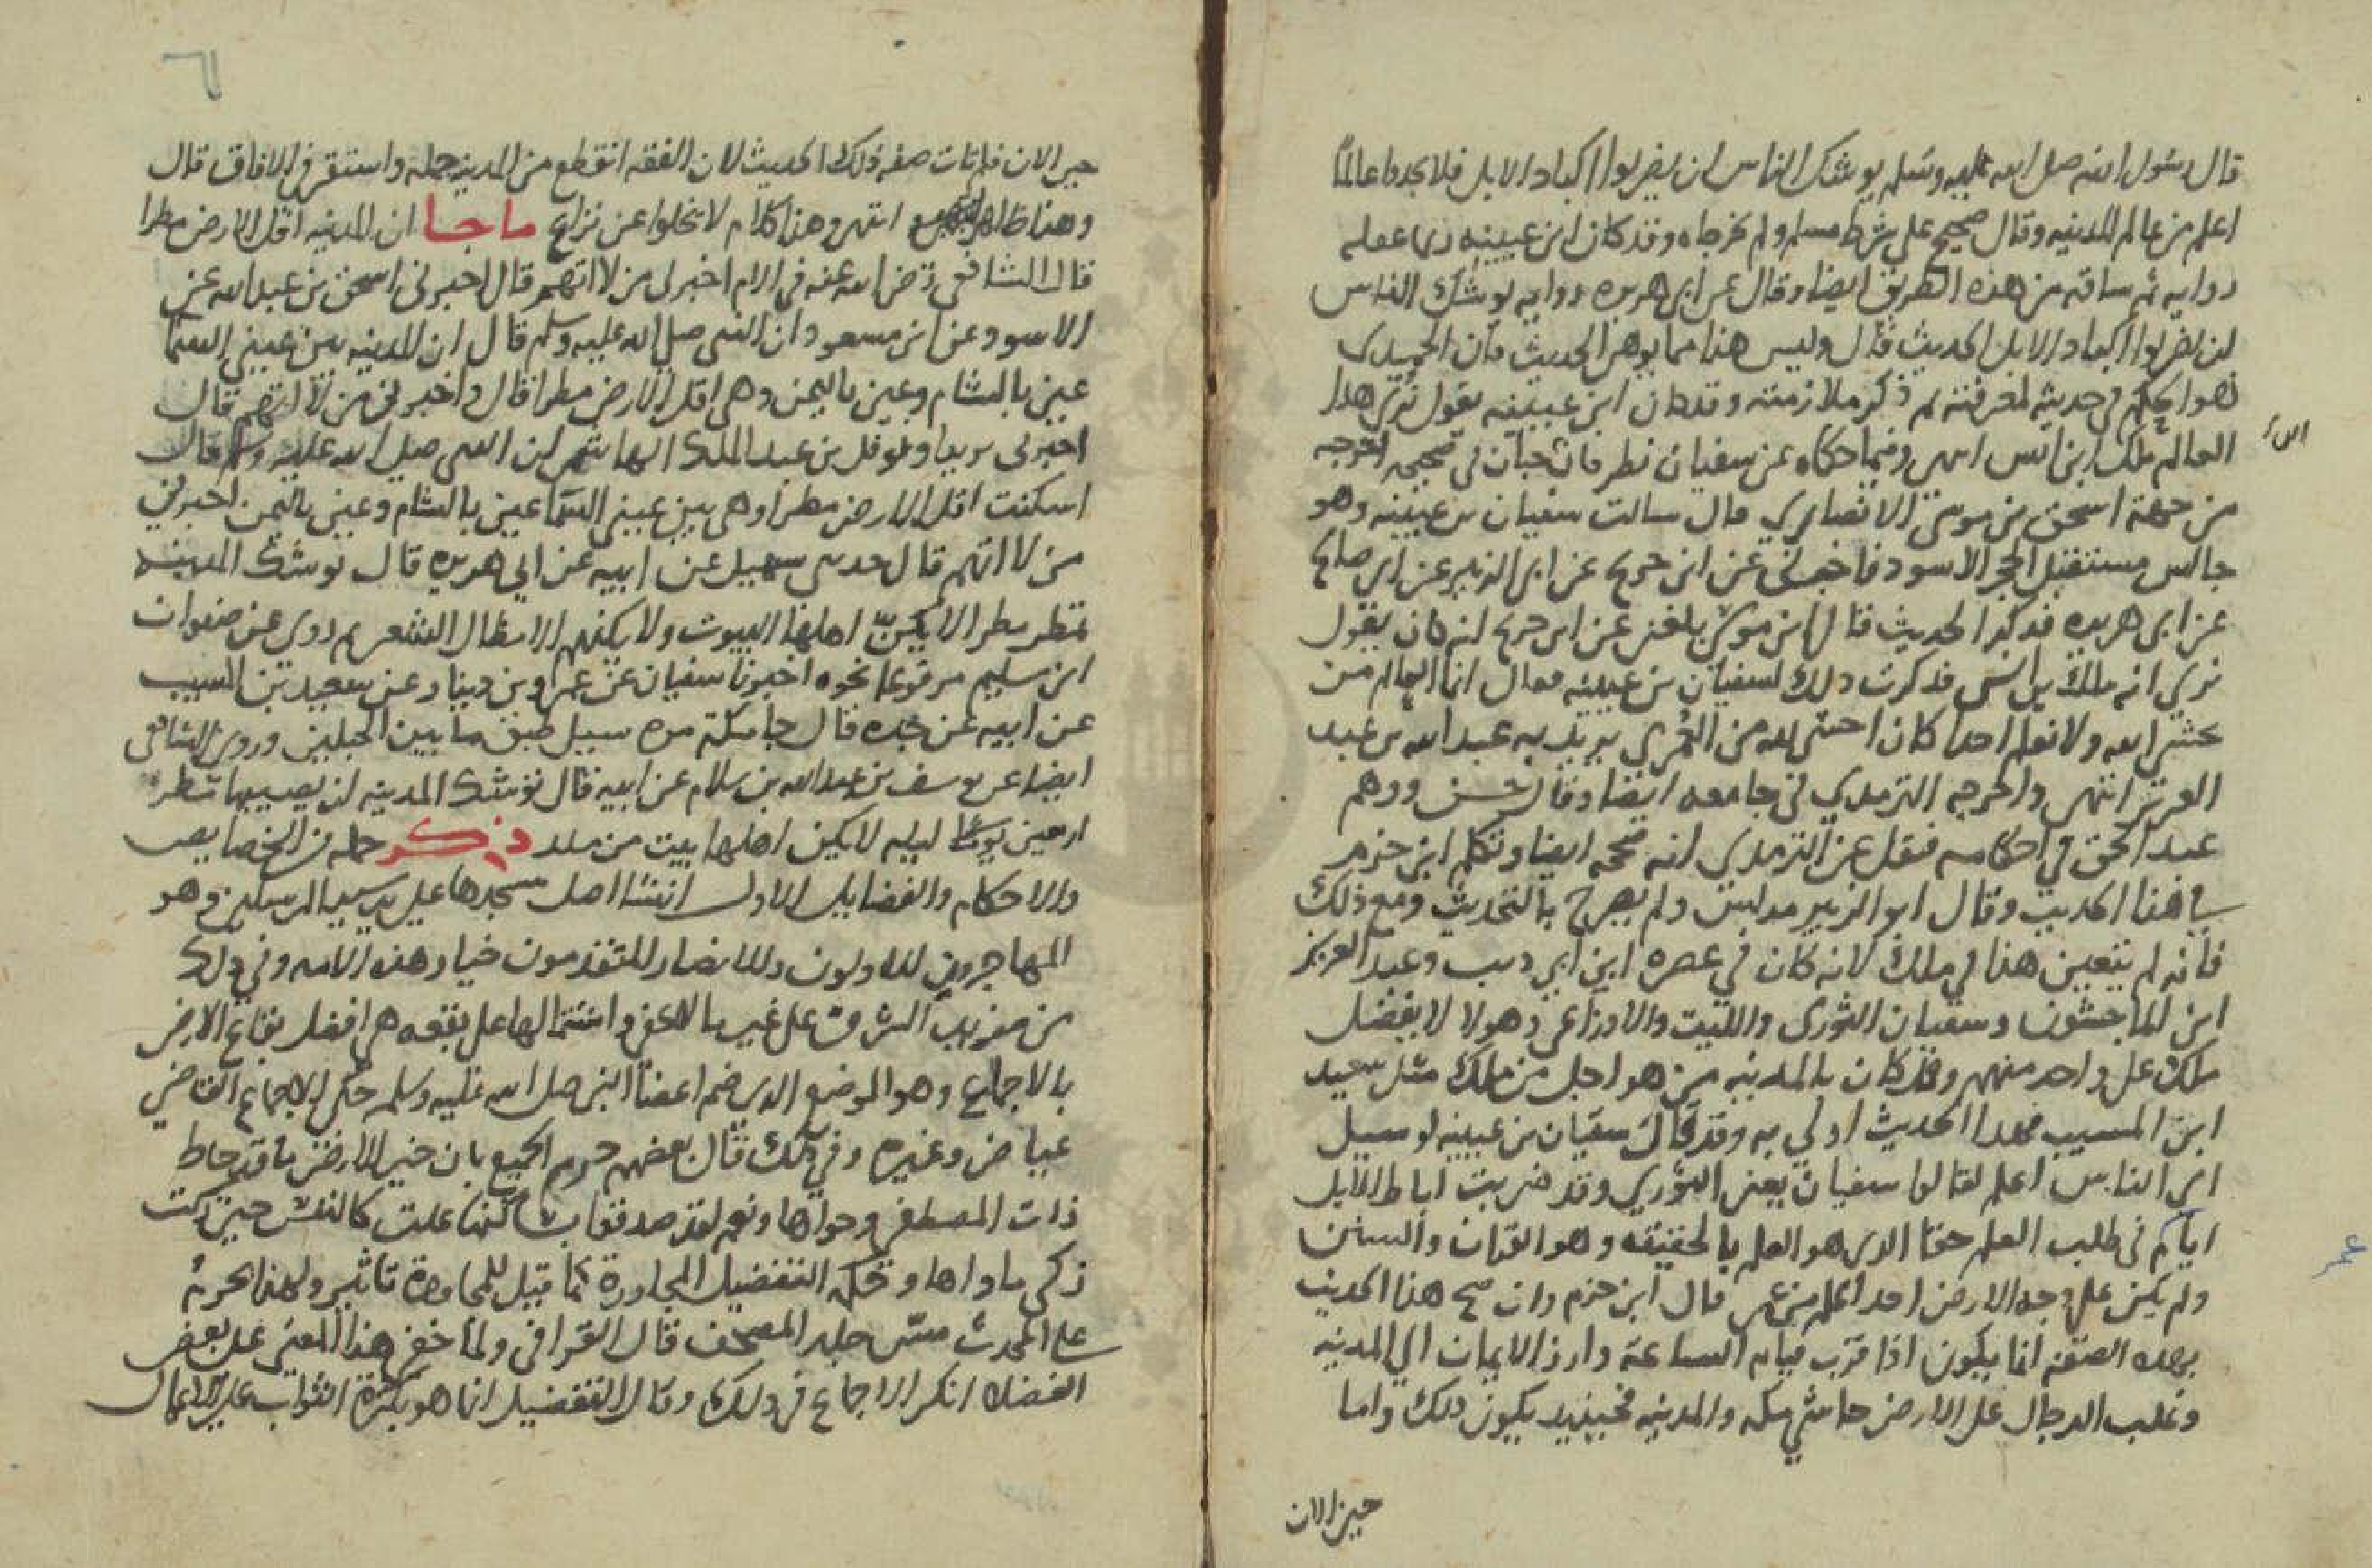 قال رسول الله صلى الله عليه وسلم يوشك الناس ان يضربوا اكباد الابل فلا يجدوا عالما
اعلم من عالم المدينه وقال صحيح على شرط مسلم ولم يخرجاه وقد كان ابن عيينه ربما جعله
روايه ثم ساقه من هذه الطريق ايضا وقال عن ابى هريره روايه يوشك الناس
ان يضربوا اكباد الابل الحديث قال وليس هذا مما يوهن الحديث فان الحميدى
هو الحكم فى حديثه لمعرفته به وكثره ملازمته وقد كان ابن عيينه يقول نرى هذا
العالم ملك ابن انس انتهى وفيما حكاه عن سفيان نظر فان ابن حبان فى صحيحه اخرجه
من جهة اسحق بن موسى الانصاري قال سالت سفيان بن عيينه وهو
جالس مستقبل الحجر الاسود فاخبرنى عن ابن جريج عن ابى الزبير عن ابى صالح
عن ابى هريره فذكر الحديث قال ابن موسى بلغنى عن ابن جريج انه كان يقول
نرى انه ملك بن انس فذكرت ذلك لسفيان بن عيينه فقال انما العالم من
يخشى الله ولا نعلم احدا كان اخشى لله من العُمري يريد به عبد الله بن عبد
العزيز انتهى واخرجه الترمذي فى جامعه ايضا وقال حسن ووهم
عبد الحق في احكامه فنقل عن الترمذي انه صححه ايضا وتكلم ابن حزم
في هذا الحديث وقال ابو الزبير مدلس ولم يصرح بالتحديث ومع ذلك
فانه لم يتعين هذا في ملك لانه كان في عصره ابن ابي ذيب وعبد العزيز
ابن الماجشون وسفيان الثورى والليث والاوزاعى وهولا لا يفضل
ملك على واحد منهم وقد كان بالمدينه من هو اجل من ملك مثل سعيد
ابن المسيب فهذا الحديث اولي به وقد قال سفيان بن عيينه لو سيل
اى الناس اعلم لقالوا سفيان يعنى الثوري وقد ضربت اباط الابل
ايام فى طلب العلم حقا الذى هو العلم بالحقيقه وهو القران والسنن
ولم يكن على وجه الارض احد اعلم من عمر قال ابن حزم وان صح هذا الحديث
بهذه الصفه انما يكون اذا قرب قيام الساعة وارز الايمان الي المدينه
وغلب الدجال على الارض حاشي مكه والمدينه فحينيذ يكون ذلك واما
حين الان
حين الان فلم تات صفه ذلك الحديث لان الفقه انقطع من المدينه جمله واستقر فى الافاق قال
وهذا ظاهر انتهى وهذا كلام لا يخلوا عن نزاع ما جا ان المدينه اقل الارض مطرا
قال الشافعى رضى الله عنه فى الام اخبرنى من لا اتهم قال اخبرنى اسحق بن عبد الله عن
الاسود عن ابن مسعود ان النبى صلى الله عليه وسلم قال ان المدينه بين عينى السما
عين بالشام وعين باليمن وهى اقل الارض مطرا قال واخبرنى من لا اتهم قال
اخبرنى يزيد او نوفل بن عبد الملك الهاشمى ان النبى صلى الله عليه وسلم قال
اسكنت اقل الارض مطرا وهى بين عينى السما عين بالشام وعين باليمن اخبرني
من لا اتهم قال حدثنى سهيل عن ابيه عن ابي هريره قال يوشك المدينه
تمطر مطرا لا يكنّ اهلها البيوت ولا يكنهم الا مظال الشعر ثم روى عن صفوان
ابن سليم مرفوعا نحوه اخبرنا سفيان عن عمرو بن دينار عن سعيد بن المسيب
عن ابيه عن جده قال جا مكة مره سيل طبق ما بين الجبلين وروى الشافعى
ايضا عن يوسف بن عبد الله بن سلام عن ابيه قال توشك المدينه ان يصيبها مطر
اربعين ليله لا يكن اهلها بيت من مدر ذكر جمله من الخصايص
والاحكام والفضايل الاول انشا اصل مسجدها على يد سيد المرسلين وهو
المهاجرون الاولون والانصار المتقدمون خيار هذه الامه وفي ذلك
من مزيد الشرف على غيره ما لا يخفى واشتمالها على بقعه هى افضل بقاع الارض
بالاجماع وهو الموضع الذى ضم اعضا النبى صلى الله عليه وسلم حكى الاجماع القاضي
عياض وغيره وفي ذلك قال بعضهم جزم الجميع بان خير الارض ما قد حاط
ذات المصطفى وحواها ونعم لقد صدقوا بساكنها علت كالنفس حين زكت
زكى ماواها وحكمه التفضيل المجاورة كما قيل للمجاورة تاثير ولهذا يحرم
على المحدث مسّ جلد المصحف قال القرافى ولما خفى هذا المعنى على بعض
الفضلا انكر الاجماع فى ذلك وقال التفضيل انما هو بكثرة الثواب على الاعمال